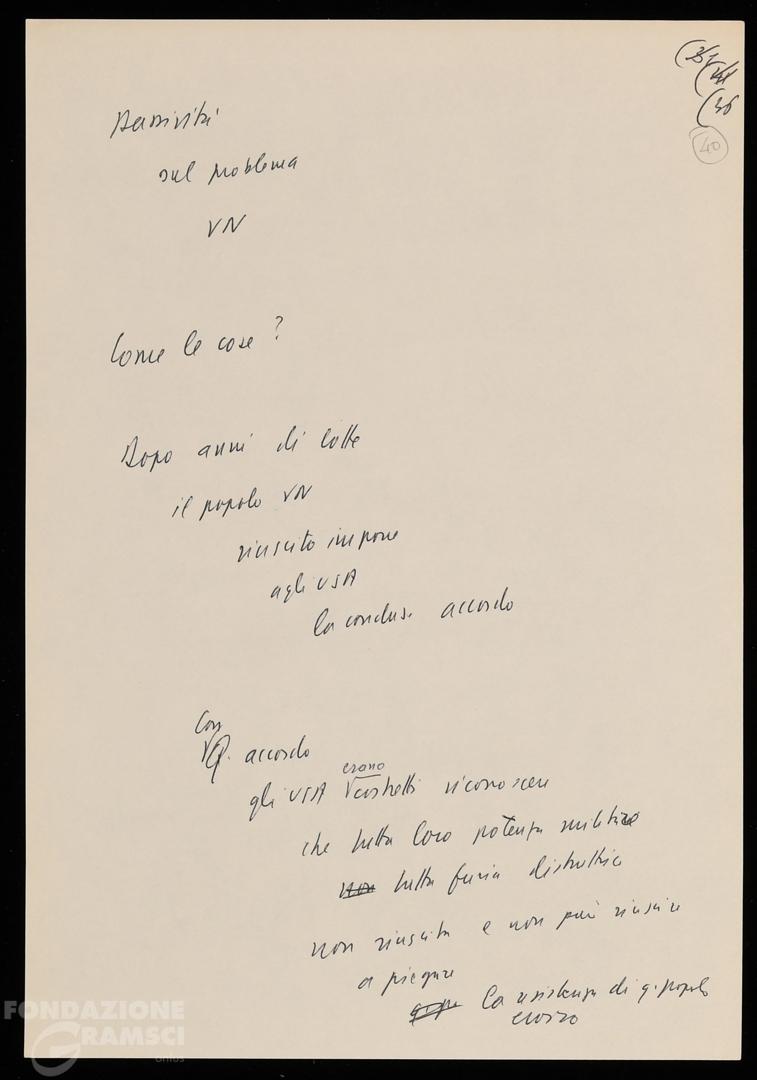 (35
(41
(36
40
Passività
sul problema
VN
Come le cose ?
Dopo anni di lotte
il popolo VN
riuscito imporre
agli USA
la conclus. accordo
Con
q. accordo
erano
gli USA costretti riconoscere
che tutta loro potenza militare
non tutta furia distruttrice
non riuscita e non può riuscire
a piegare
la resistenza di q. popolo
eroico
FONDAZIONE
GRAMSCI
onlus